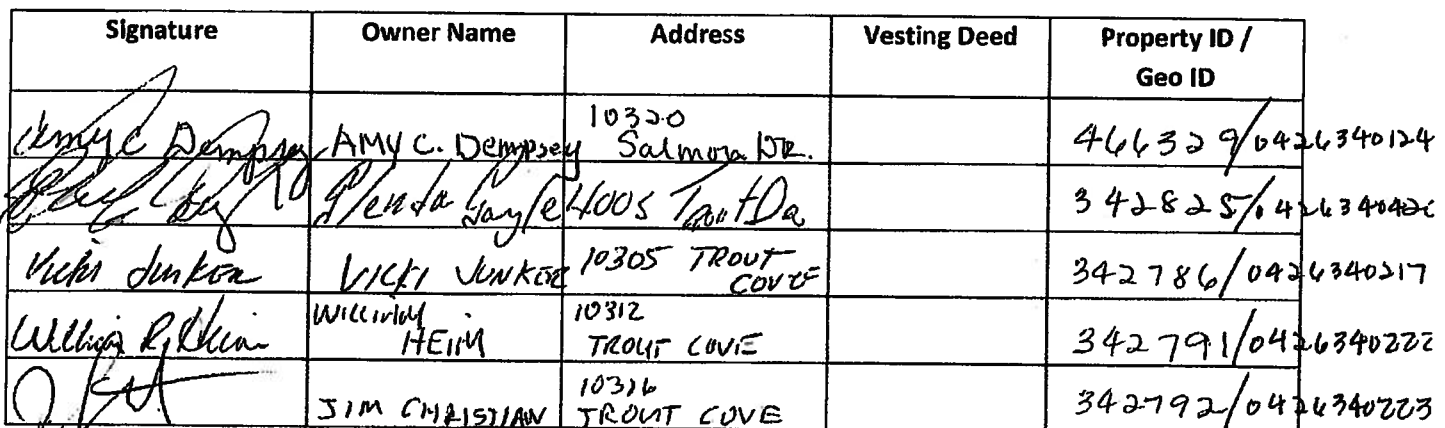 Signature Owner Name Address Vesting Deed Property ID /
Geo ID
10320
Amy C Dempsey AMY C. Dempsey Salmon DR. 466329/0426340124
Glenda Gayle 4005 Trout Dr 342825/0426340426
Vicki Junker VICKI JUNKER 10305 TROUT 342786/0426340217
COVE
William 10312
William R. Heim HEIM TROUT COVE 342791/0426340222
10316
JIM CHRISTIAN TROUT COVE 342792/0426340223